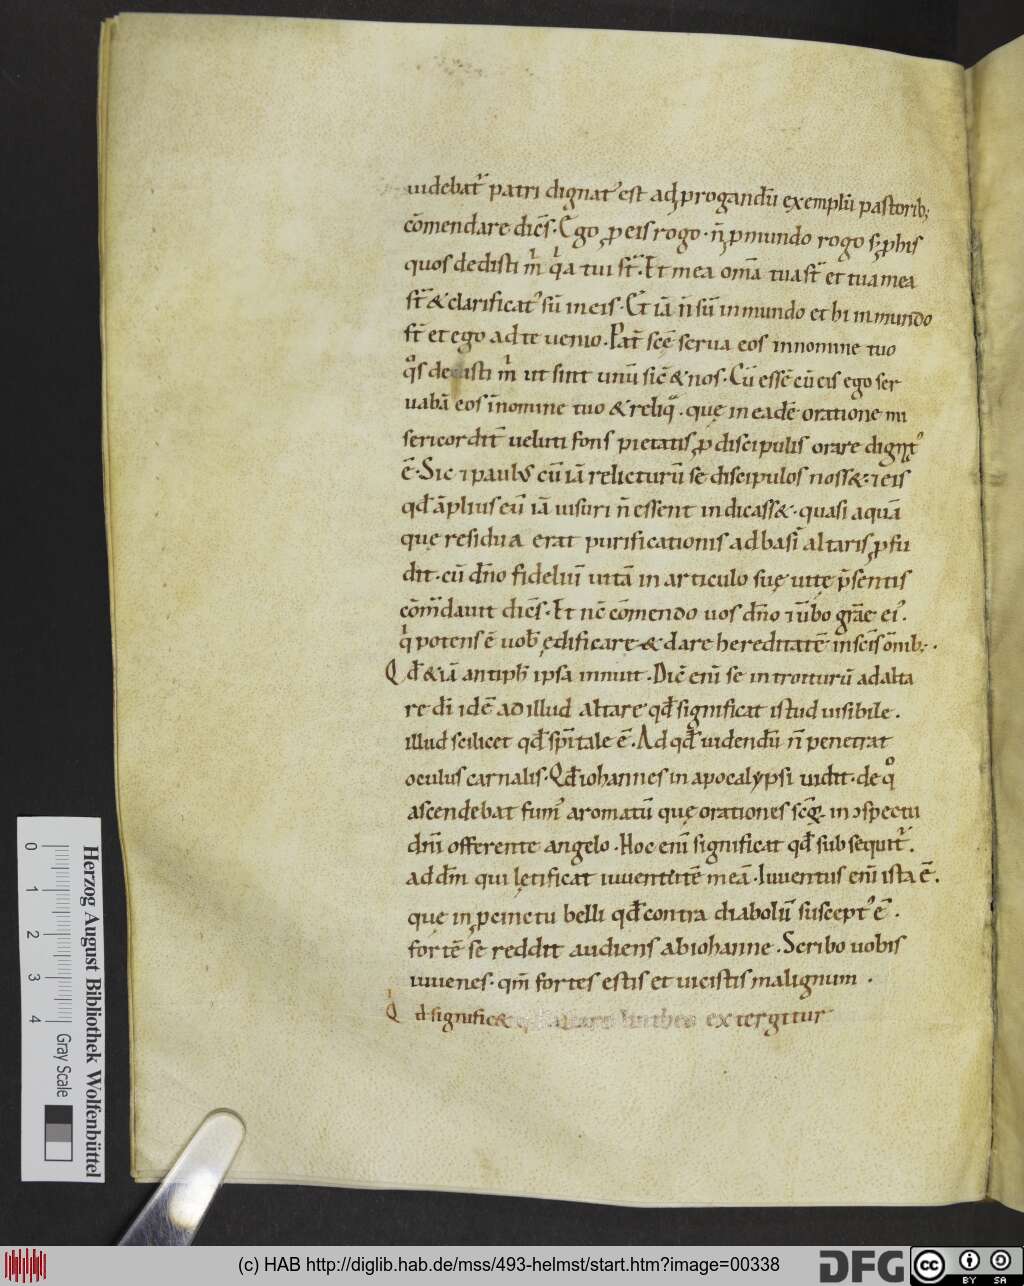 uidebat᷑ patri dignatꝰ est ad ꝓpagandū exemplū pastorib;
cōmendare dicēs. Ego ꝓ eis rogo. n̄ ꝓ mundo rogo s; ꝓ his
quos dedisti m̍ q̍a tui st̄. Et mea om̄a tua st̄ et tua mea
st̄ & clarificatꝰ sū in eis. Et iā n̄ sū in mundo et hi in mundo
st̄ et ego ad te uenio. Pat̄ scē serua eos in nomine tuo
qͦs dedisti m̍ ut sint unū sic̄ & nos. Cū essē cū eis ego ser
uabā eos ī nomine tuo & reliqͣ. que in eadē oratione mi
sericordit᷑ ueluti fons pietatis ꝓ discipulis orare dignatꝰ
ē. Sic ⁊ paulus cū iā relicturū se discipulos noss&. ⁊ eis
qd̄ āplius eū iā uisuri n̄ essent indicass&. quasi aquā
quę residua erat purificationis ad basī altaris ꝓfu
dit. cū dn̄o fideliū uitā in articulo suę uitę p̄sentis
cōm̄dauit dicēs. Et nc̄ cōmendo uos dn̄o ⁊ ūbo grāe eiꝰ.
q̍ potens ē uob̄ ędificare & dare hereditatē in scīs om̄ib;.
Qd̄ & iā antiph̄ ipsa innuit. Dic̄ enī se introiturū ad alta
re dī idē ad illud altare qd̄ significat istud uisibile.
illud scilicet qd̄ spīitale ē. Ad qd̄ uidendū n̄ penetrat
oculus carnalis. Qd̄ iohannes in apocalypsi uidit. de qͦ
ascendebat fumꝰ aromatū quę orationes scōꝝ in ↄspectu
dn̄i offerente angelo. Hoc enī significat qd̄ subsequit᷑.
ad dm̄ qui lętificat iuuentutē meā. Iuuentus enī ista ē.
quę in ꝓcinctu belli qd̄ contra diabolū susceptꝰ ē.
fortē se reddit audiens ab iohanne. Scribo uobis
iuuenes. qm̄ fortes estis et uicistis malignum.
Qd significet altare lintheo extergitur
0 1 2 3 4
Gray Scale
Herzog August Bibliothek Wolfenbüttel
(c) HAB http://diglib.hab.de/mss/493-helmst/start.htm?image=00338
DFG
cc BY SA